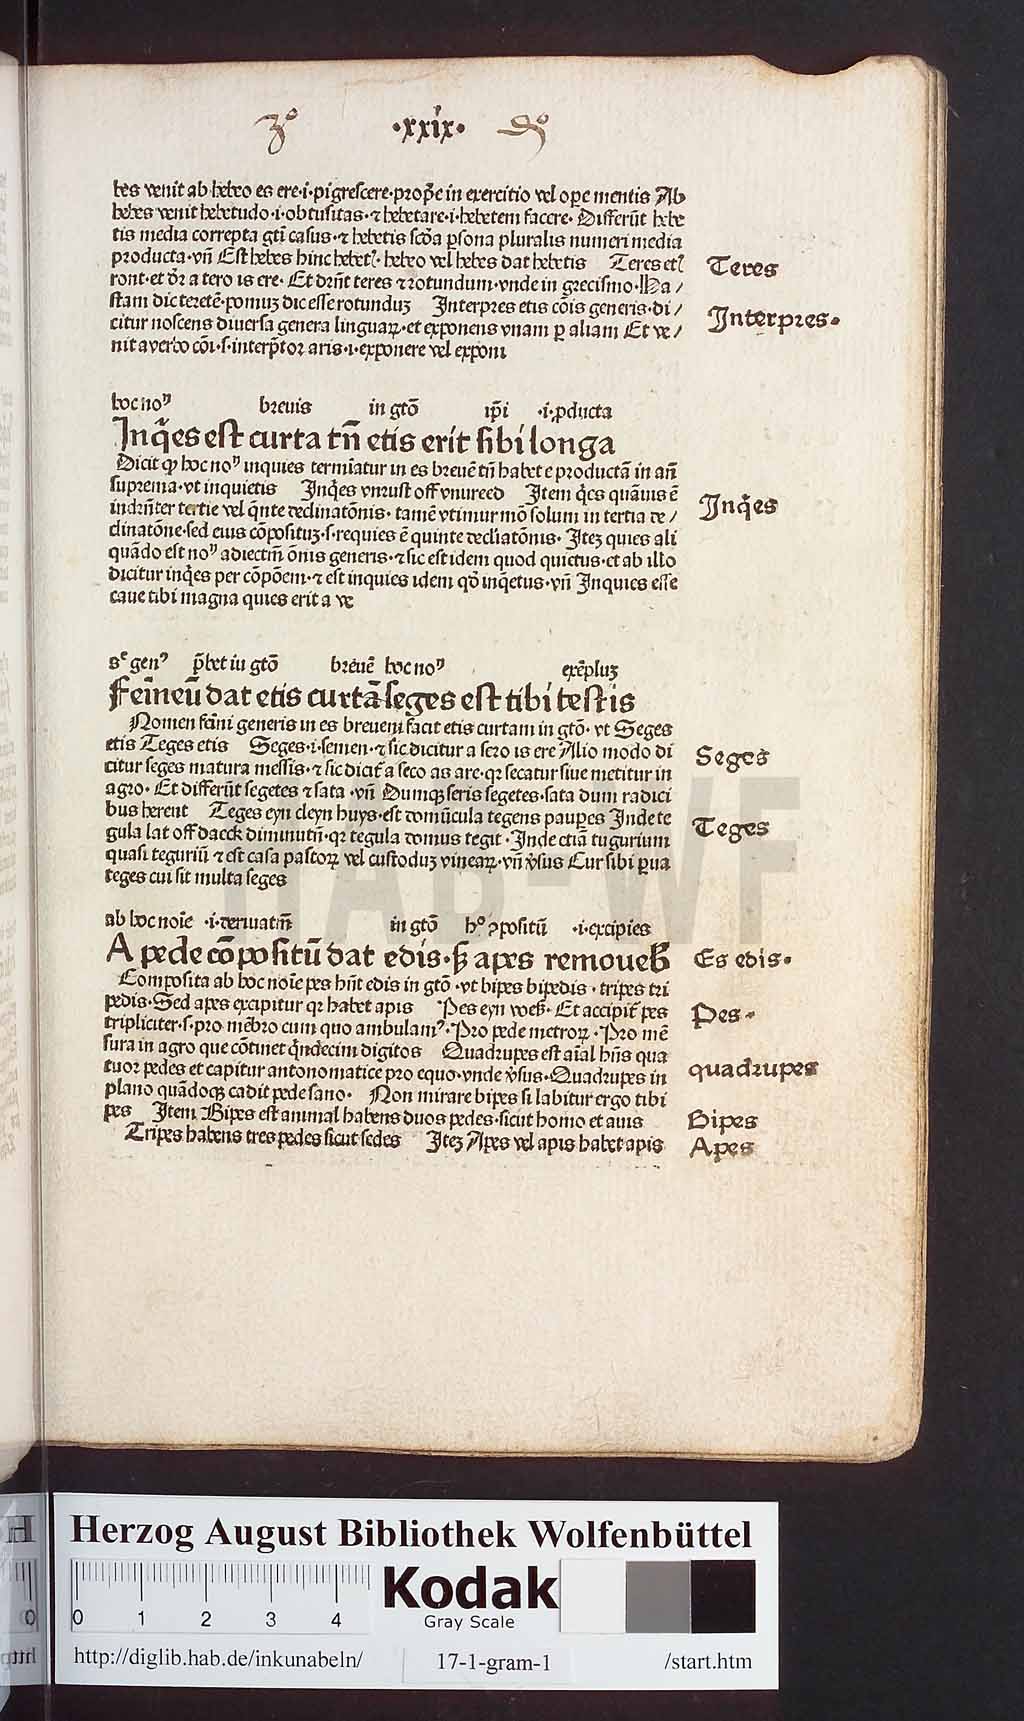 3º ·xxix· dº
bes venit ab hebeo es ere·i·pigrescere·prop̃e in exercitio vel oꝑe mentis Ab
hebes venit hebetudo·i·obtusitas·⁊ hebetare·i·hebetem facere· Differũt hebe
tis media correpta gtĩ casus·⁊ hebetis scđa ꝑsona pluralis numeri media
producta·vñ Est hebes hinc hebetꝭ· hebeo vel hebes dat hebetis Teres etꝭ
ront·et dr̃ a tero is ere· Et drñt teres ⁊ rotundum·vnde in grecismo·Ha/
stam dic teretẽ·pomuꝫ dic esse rotunduꝫ Interpres etis cõis generis·di/
citur noscens diuersa genera linguaꝝ·et exponens vnam ꝑ aliam Et ve/
nit a verbo cõi·s·interp̃tor aris·i·exponere vel exponi
Teres
Interpres·
hoc noꝰ breuis in gtõ ip̃i ·i·ꝓducta
Inq̃es est curta tñ etis erit sibi longa
Dicit ꝙ hoc noꝰ inquies termĩatur in es breuẽ tñ habet e productã in añ
suprema·vt inquietis Inq̃es vnrust off vnureed Item q̃es quãuis ẽ
indrñter tertie vel q̃nte declinatõnis· tamẽ vtimur mõ solum in tertia de/
clinatõne·sed eius cõposituꝫ·s·requies ẽ quinte decliatõnis· Iteꝫ quies ali
quãdo est noꝰ adiectiũ õnis generis·⁊ sic est idem quod quietus·et ab illo
dicitur inq̃es per cõpõem·⁊ est inquies idem qđ inq̃etus·vñ Inquies esse
caue tibi magna quies erit a ve
Inq̃es
genꝰ p̃bet in gtõ breuẽ hoc noꝰ exẽpluꝫ
Femĩeũ dat etis curtã·seges est tibi testis
Nomen femĩ generis in es breuem facit etis curtam in gtõ· vt Seges
etis Teges etis Seges·i·semen·⁊ sic dicitur a sero is ere Alio modo di
citur seges matura messis·⁊ sic dicit̃ a seco as are·qꝛ secatur siue metitur in
agro· Et differũt segetes ⁊ sata ·vñ Dumqꝫ seris segetes·sata dum radici
bus herent Teges eyn cleyn huys·est domũcula tegens pauꝑes Inde te
gula lat off daeck diminutiũ·qꝛ tegula domus tegit· Inde etiã tugurium
quasi teguriũ ⁊ est casa pastoꝝ vel custoduꝫ vineaꝝ·vñ v̉sus Cur sibi ꝑua
teges cui sit multa seges
Seges
Teges
ab hoc noĩe ·i·deriuatũ in gtõ hº ꝯpositũ ·i·excipies
A pede cõpositũ dat edis·sꝫ apes remoueb
Composita ab hoc noĩe pes hñt edis in gtõ ·vt bipes bipedis · tripes tri
pedis·Sed apes excipitur qꝛ habet apis Pes eyn voeß· Et accipit̃ pes
tripliciter·s·pro mẽbro cum quo ambulamꝰ·Pro pede metroꝝ·Pro mẽ
sura in agro que cõtinet q̃ndecim digitos Quadrupes est aĩal hñs qua
tuor pedes et capitur antonomatice pro equo·vnde v̉sus·Quadrupes in
plano quãdoqꝫ cadit pede sano· Non mirare bipes si labitur ergo tibi
pes Item Bipes est animal habens duos pedes·sicut homo et auis
Tripes habens tres pedes sicut sedes Iteꝫ Apes vel apis habet apis
Es edis·
Pes·
quadrupes
Bipes
Apes
HAB-WF
Herzog August Bibliothek Wolfenbüttel
0 1 2 3 4
Kodak
Gray Scale
http://diglib.hab.de/inkunabeln/ 17-1-gram-1 /start.htm